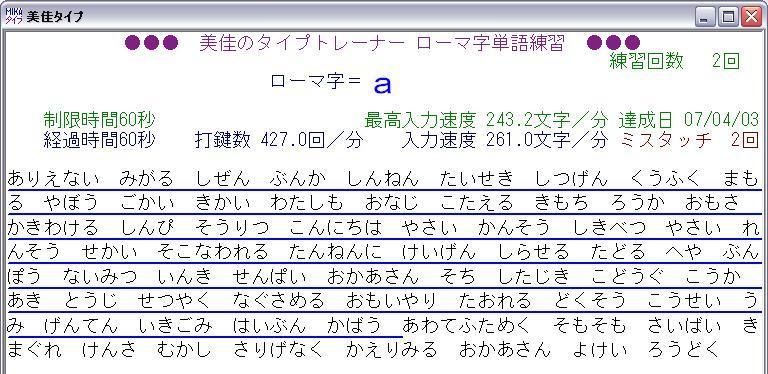 MIKA タイプ 美佳タイプ
●●● 美佳のタイプトレーナー ローマ字単語練習 ●●●
練習回数 2回
ローマ字= a
制限時間60秒 最高入力速度 243.2文字/分 達成日 07/04/03
経過時間60秒 打鍵数 427.0回/分 入力速度 261.0文字/分 ミスタッチ 2回
ありえない みがる しぜん ぶんか しんねん たいせき しつげん くうふく まも
る やぼう ごかい きかい わたしも おなじ こたえる きもち ろうか おもさ
かきわける しんぴ そうりつ こんにちは やさい かんそう しきべつ やさい れ
んそう せかい そこなわれる たんねんに けいげん しらせる たどる へや ぶん
ぽう ないみつ いんき せんぱい おかあさん そち したじき こどうぐ こうか
あき とうじ せつやく なぐさめる おもいやり たおれる どくそう こうせい う
み げんてん いきごみ はいぶん かばう あわてふためく そもそも さいばい き
まぐれ けんさ むかし さりげなく かえりみる おかあさん よけい ろうどく